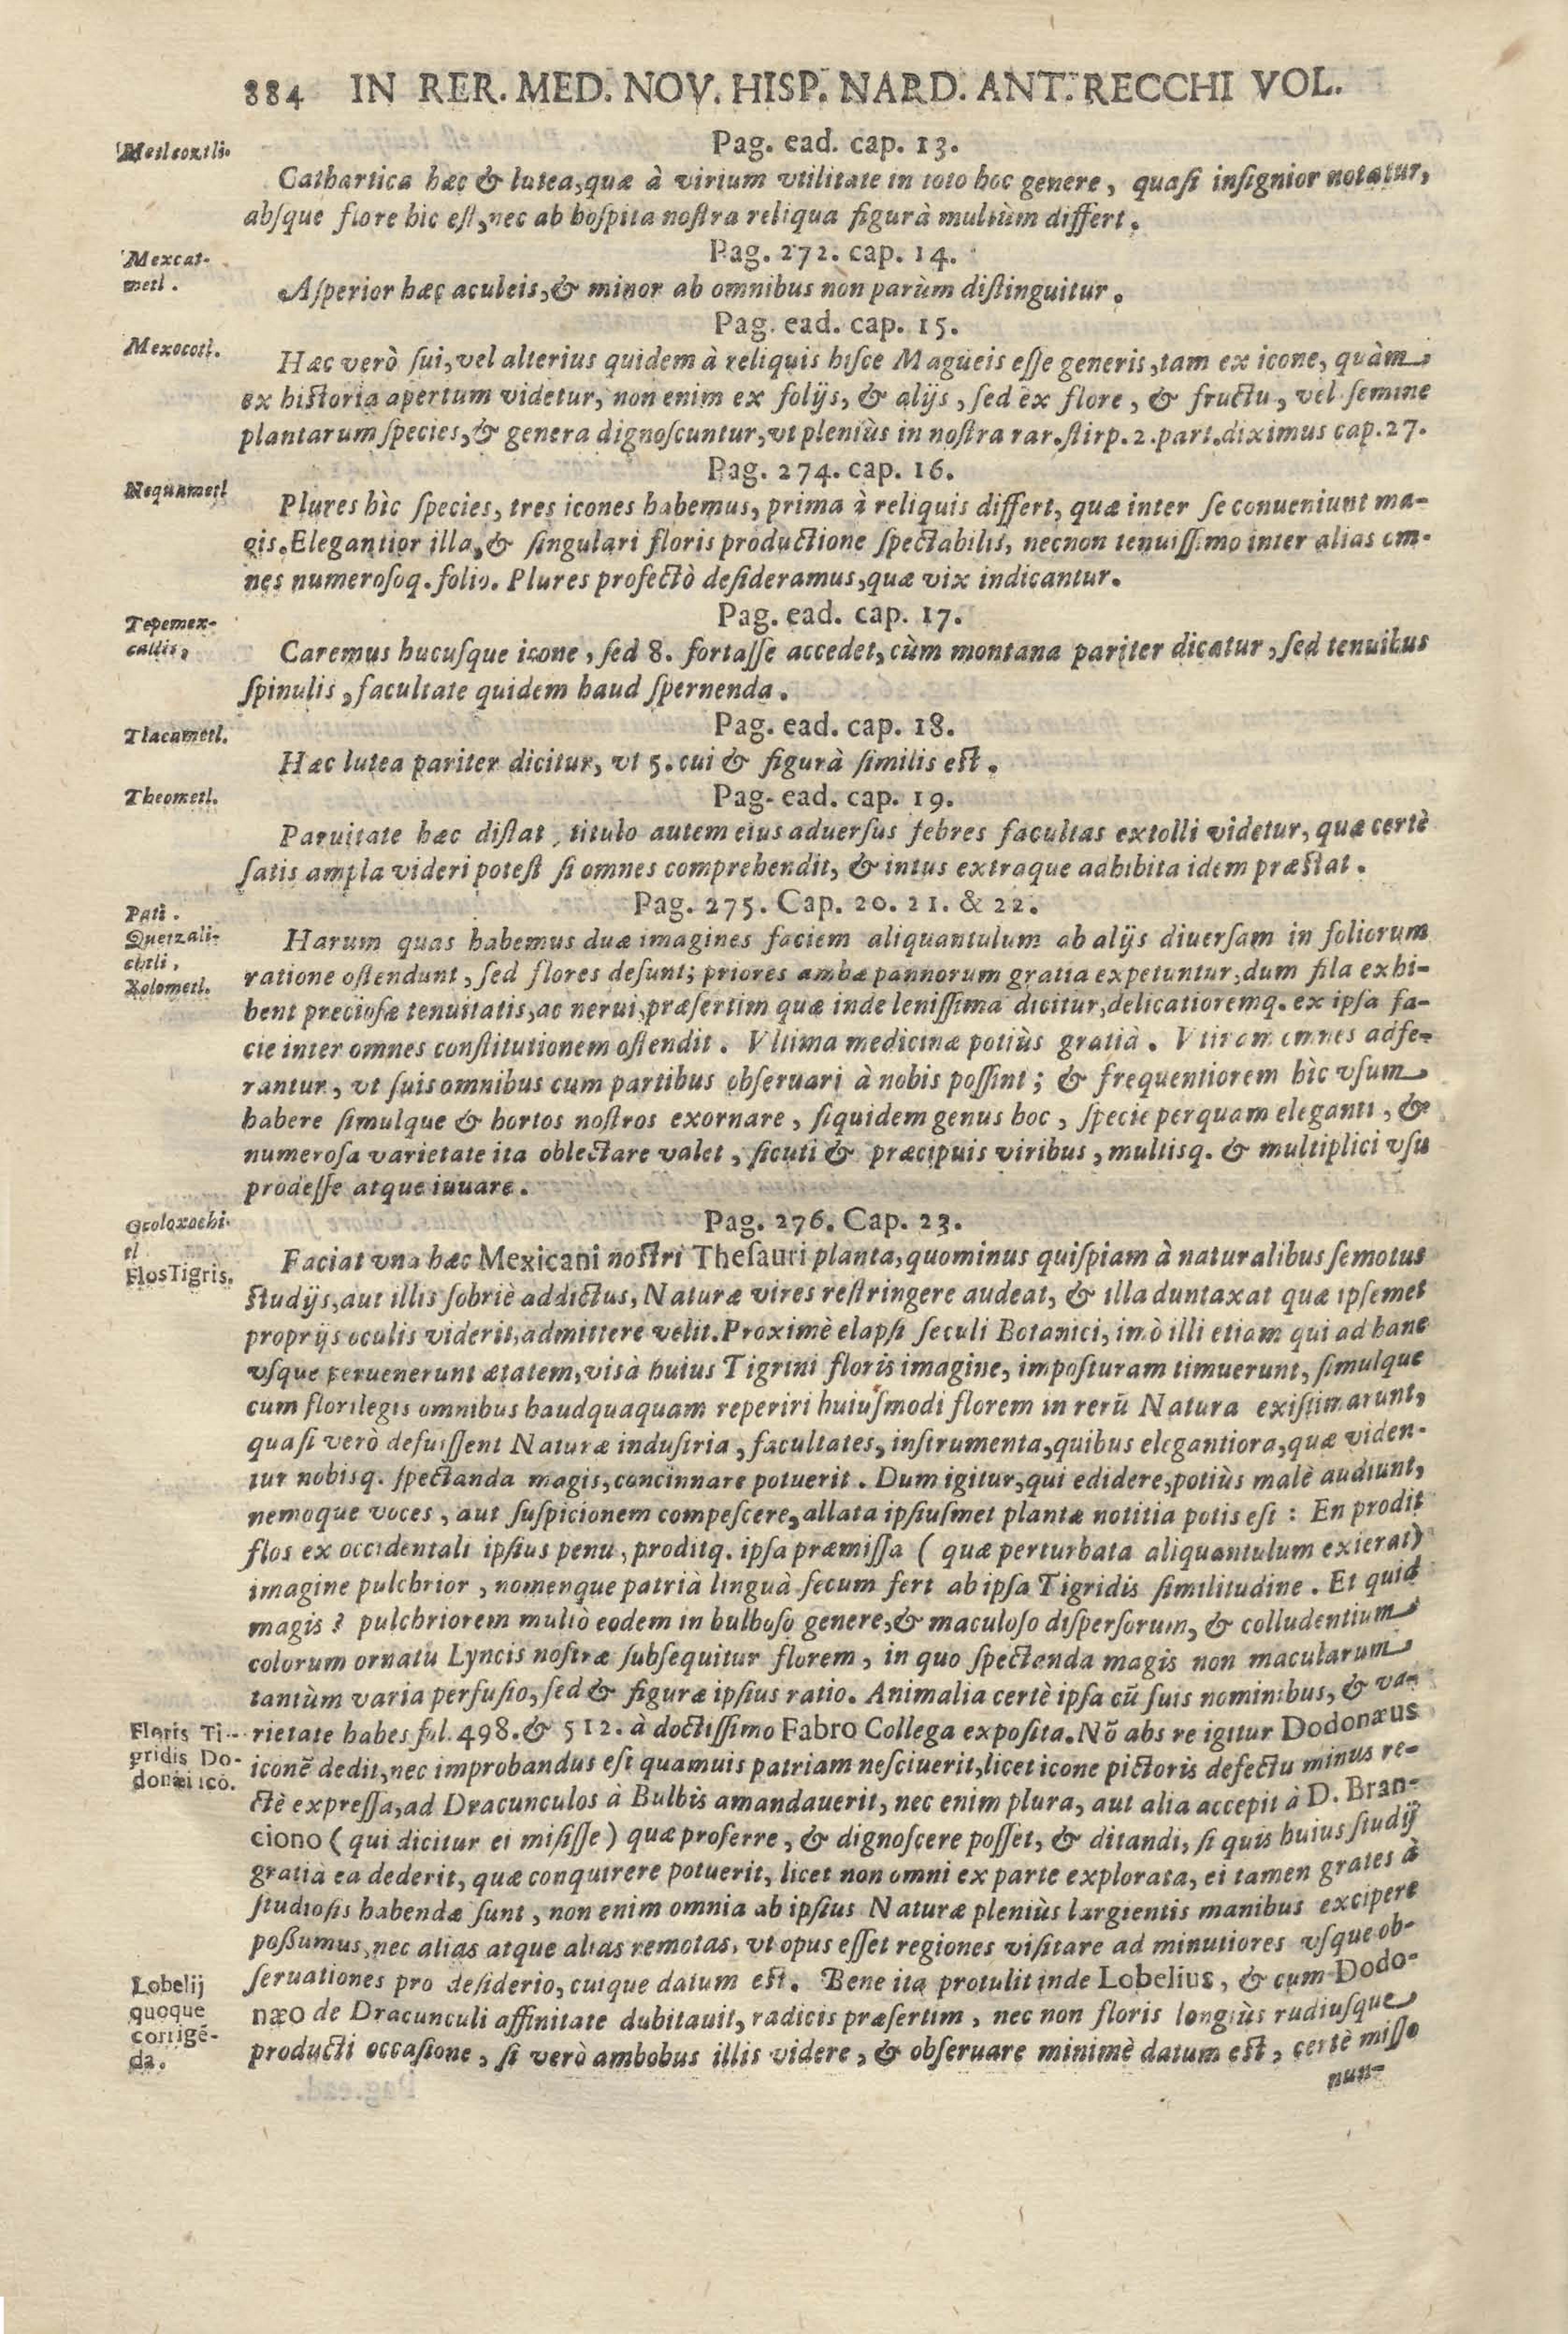 884 IN RER. MED. NOV. HISP. NARD. ANT. RECCHI VOL.
Metlcoxtli.
Pag. ead. cap. 13.
Cathartica hæc & lutea, quæ à virium vtilitate in toto hoc genere, quasi insignior notatur,
absque flore hic est, nec ab hospita nostra reliqua figurà multùm differt.
Mexcat-
metl.
Pag. 272. cap. 14.
Asperior hæc aculeis, & minor ab omnibus non parùm distinguitur.
Pag. ead. cap. 15.
Mexocotl.
Hæc verò sui, vel alterius quidem à reliquis hisce Magueis esse generis, tam ex icone, quàm
ex historia apertum videtur, non enim ex folijs, & alijs, sed ex flore, & fructu, vel semine
plantarum species, & genera dignoscuntur, vt pleniùs in nostra rar. stirp. 2. part. diximus cap. 27.
Pag. 274. cap. 16.
Nequametl
Plures hìc species, tres icones habemus, prima à reliquis differt, quæ inter se conueniunt ma-
gis. Elegantior illa, & singulari floris productione spectabilis, necnon tenuissimo inter alias om-
nes numerosoq. folio. Plures profectò desideramus, quæ vix indicantur.
Tepemex-
callis,
Pag. ead. cap. 17.
Caremus hucusque icone, sed 8. fortasse accedet, cùm montana pariter dicatur, sed tenuibus
spinulis, facultate quidem haud spernenda.
Pag. ead. cap. 18.
Tlacametl.
Hæc lutea pariter dicitur, vt 5. cui & figurà similis est.
Theometl.
Pag. ead. cap. 19.
Paruitate hæc distat, titulo autem eius aduersus febres facultas extolli videtur, quæ certè
satis ampla videri potest si omnes comprehendit, & intus extraque adhibita idem præstat.
Pag. 275. Cap. 20. 21. & 22.
Pati.
Quetzali-
chtli,
Xolometl.
Harum quas habemus duæ imagines faciem aliquantulum ab alijs diuersam in foliorum
ratione ostendunt, sed flores desunt; priores ambæ pannorum gratia expetuntur, dum fila exhi-
bent preciosæ tenuitatis, ac nerui, præsertim quæ inde lenissima dicitur, delicatioremq. ex ipsa fa-
cie inter omnes constitutionem ostendit. Vltima medicinæ potiùs gratià. Vtinam omnes adfe-
rantur, vt suis omnibus cum partibus obseruari à nobis possint; & frequentiorem hìc vsum
habere simulque & hortos nostros exornare, siquidem genus hoc, specie perquam eleganti, &
numerosa varietate ita oblectare valet, sicuti & præcipuis viribus, multisq. & multiplici vsu
prodesse atque iuuare.
Ocoloxochi-
tl
FlosTigris.
Pag. 276. Cap. 23.
Faciat vna hæc Mexicani nostri Thesauri planta, quominus quispiam à naturalibus semotus
studijs, aut illis sobriè addictus, Naturæ vires restringere audeat, & illa duntaxat quæ ipsemet
proprijs oculis viderit, admittere velit. Proximè elapsi seculi Botanici, imò illi etiam qui ad hanc
vsque peruenerunt ætatem, visà huius Tigrini floris imagine, imposturam timuerunt, simulque
cum florilegis omnibus haudquaquam reperiri huiusmodi florem in rerū Natura existimarunt,
quasi verò defuissent Naturæ industria, facultates, instrumenta, quibus elegantiora, quæ viden-
tur nobisq. spectanda magis, concinnare potuerit. Dum igitur, qui edidere, potiùs malè audiunt,
nemoque voces, aut suspicionem compescere, allata ipsiusmet plantæ notitia potis est: En prodit
flos ex occidentali ipsius penu, proditq. ipsa præmissa (quæ perturbata aliquantulum exierat)
imagine pulchrior, nomenque patrià linguà secum fert ab ipsa Tigridis similitudine. Et quid
magis? pulchriorem multò eodem in bulboso genere, & maculoso dispersorum, & colludentium
colorum ornatu Lyncis nostræ subsequitur florem, in quo spectanda magis non macularum
tantùm varia perfusio, sed & figuræ ipsius ratio. Animalia certè ipsa cū suis nominibus, & va-
Floris Ti-
gridis Do-
donæi icō.
rietate habes fol. 498. & 512. à doctissimo Fabro Collega exposita. Nō abs re igitur Dodonæus
iconē dedit, nec improbandus est quamuis patriam nesciuerit, licet icone pictoris defectu minus re-
ctè expressa, ad Dracunculos à Bulbis amandauerit, nec enim plura, aut alia accepit à D. Bran-
ciono (qui dicitur ei misisse) quæ proferre, & dignoscere posset, & ditandi, si quis huius studij
gratià ea dederit, quæ conquirere potuerit, licet non omni ex parte explorata, ei tamen grates à
studiosis habendæ sunt, non enim omnia ab ipsius Naturæ pleniùs largientis manibus excipere
possumus, nec alias atque alias remotas, vt opus esset regiones visitare ad minutiores vsque ob-
Lobelij
quoque
corrigē-
da.
seruationes pro desiderio, cuique datum est. Bene ita protulit inde Lobelius, & cum Dodo-
næo de Dracunculi affinitate dubitauit, radicis præsertim, nec non floris longiùs rudiusque
producti occasione, si verò ambobus illis videre, & obseruare minimè datum est, certè misso
nun-